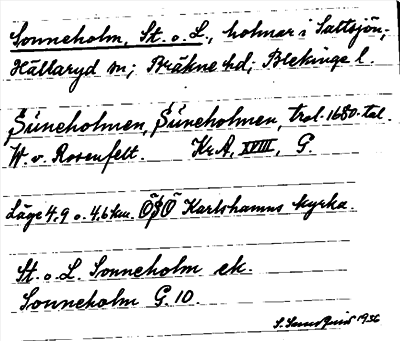 Sonneholm, St. o. L., holmar i Saltsjön,
Hällaryd sn; Bräkne hd; Blekinge l.
Süneholmen, Süneholmen, trol. 1680-tal.
W. v. Rosenfelt. KrA, XVIII, G.
Läge 4,9 o. 4,6 km. ÖSÖ Karlshamns kyrka.
St. o. L. Sonneholm ek.
Sonneholm G. 10.
S. 1936